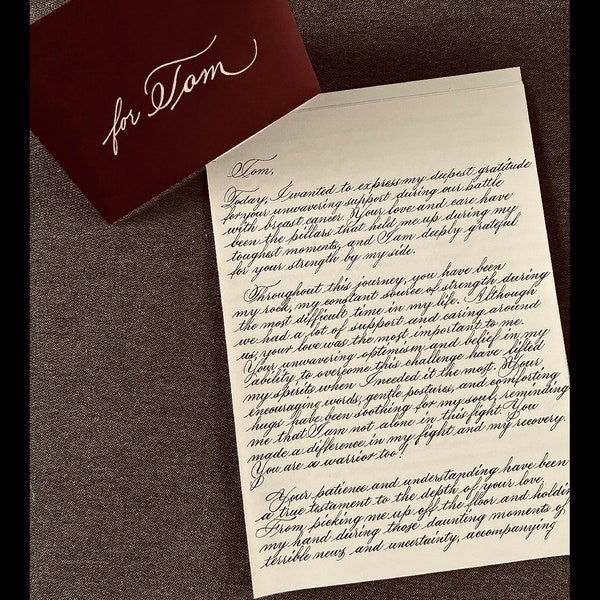 for Tom
Tom,
Today, I wanted to express my deepest gratitude
for your unwavering support during our battle
with breast cancer. Your love and care have
been the pillars that held me up during my
toughest moments, and I am deeply grateful
for your strength by my side.
Throughout this journey, you have been
my rock, my constant source of strength during
the most difficult time in my life. Although
we had a lot of support and caring around
us, your love was the most important to me.
Your unwavering optimism and belief in my
ability to overcome this challenge have lifted
my spirits when I needed it the most. Your
encouraging words, gentle postures, and comforting
hugs have been soothing for my soul, reminding
me that I am not alone in this fight. You
made a difference in my fight and my recovery.
You are a warrior too!
Your patience and understanding have been
a true testament to the depth of your love.
From picking me up off the floor and holdin
my hand during those daunting moments of
terrible news and uncertainty, accompanying